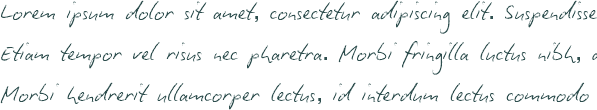 Lorem ipsum dolor sit amet, consectetur adipiscing elit. Suspendisse
Etiam tempor vel risus nec pharetra. Morbi fringilla luctus nibh,
Morbi hendrerit ullamcorper lectus, id interdum lectus commodo